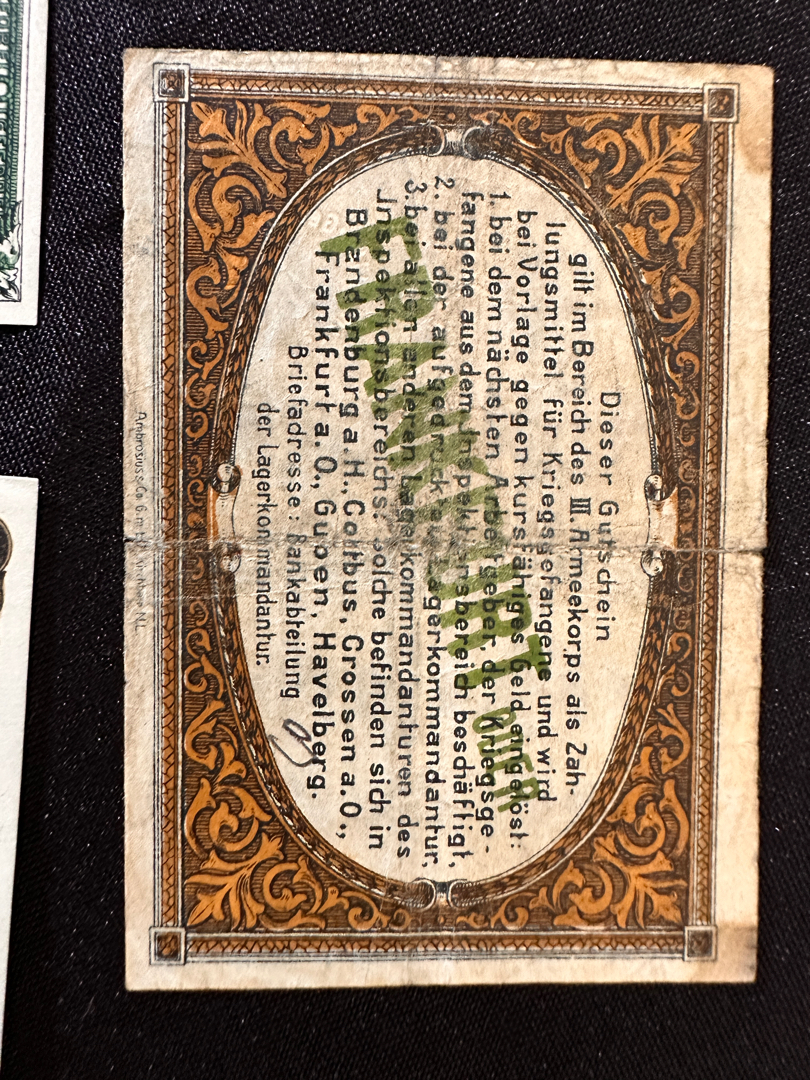 Dieser Gutschein
gilt im Bereich des III. Armeekorps als Zah-
lungsmittel für Kriegsgefangene und wird
bei Vorlage gegen kursfähiges Geld eingelöst:
1. bei dem nächsten Arbeitgeber, der Kriegsge-
fangene aus dem Inspektionsbereich beschäftigt,
2. bei der aufgedruckten Lagerkommandantur,
3. bei allen anderen Lagerkommandanturen des
Inspektionsbereichs; solche befinden sich in
Brandenburg a. H., Cottbus, Crossen a. O.,
Frankfurt a. O., Guben, Havelberg.
Briefadresse: Bankabteilung
der Lagerkommandantur.
FRANKFURT ODER
Ambrosius & Co G.m.b.H.